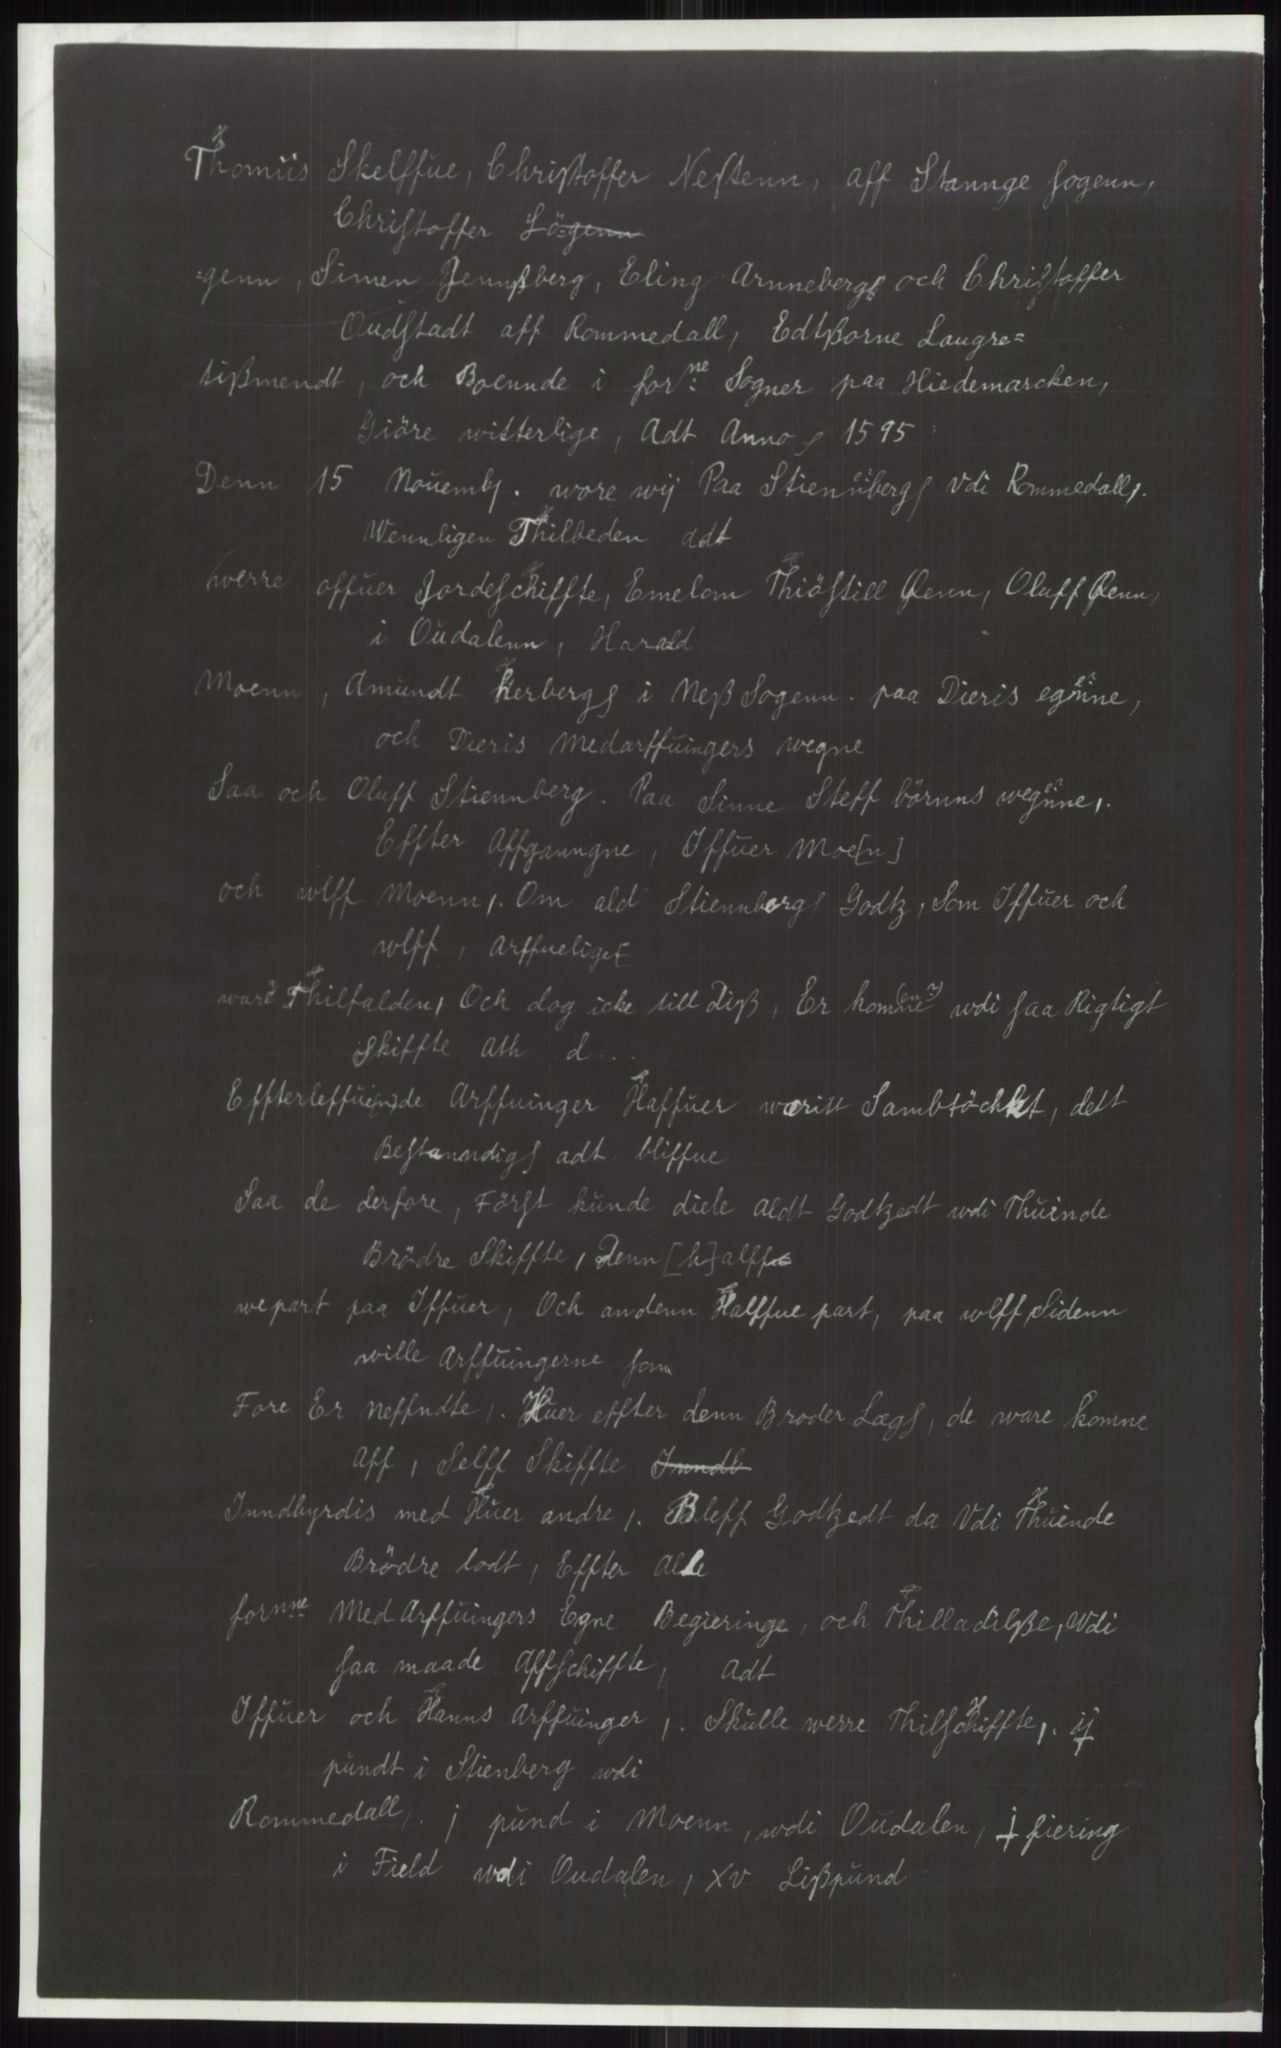 Thomiis Skelffue, Christoffer Nestenn, aff Stannge sogenn,
Christoffer Lö=genn
=genn, Simen Jennßberg, Eling Arnnebergs och Christoffer
Oudstadt aff Rommedall, Edtßorne Laugre=
tißmendt, och Boennde i forne Sogner paa Hiedemarcken,
Giöre witterlige, Adt Anno 1595
Denn 15 Nouembj. wore wij Paa Stienübergs Vdi Rommedall,.
Wennligen Thilbeden adt
werre offuer Jordeschiffte, Emelom Thiöstill Øenn, Oluff Øenn,
i Oudalenn, Harald
Moenn, Amundt Herbergs i Neß Sogenn. paa Dieris egnne,
och Dieris Medarffuingers wegne
Saa och Oluff Stiennberg. Paa Sinne Steff börnns wegnne,.
Effter Affganngne, Iffuer Moe[n]
och wlff Moenn,. Om ald Stiennbergs Godtz, Som Iffuer och
wlff, Arffueliget
ware Thilfalden, Och dog icke till Diß, Er komne (en?) wdi saa Rigtigt
Skiffte Ath d...
Effterleffue(n)de Arffuinger Haffuer weritt Sambtöchkt, dett
Bestanndigs adt bliffue
Saa de derfore, Först kunde diele Aldt Godtzedt wdi Thuinde
Brödre Skiffte, Denn [h]alff
wepart paa Iffuer, Och andenn Halffue part, paa wlff, Sidenn
wille Arffuingerne som
Fore Er neffndte,. Huer effter denn Broder Lægs, de ware komne
Aff, Selff Skiffte Inndb
Inndbyrdis med Huer andre,. Bleff Godtzedt da Vdi Thuinde
Brödre lodt, Effter Alle
fornne Med Arffuingers Egne Begieringe, och Thilladelße, Wdi
saa maade Affschiffte, Adt
Iffuer och Hanns Arffuinger,. Skulle werre Thilschiffte,. ij
pundt i Stienberg wdi
Rommedall,. j pund i Moenn, wdi Oudalen, j fiering
i Field wdi Oudalen, xv Lißpund